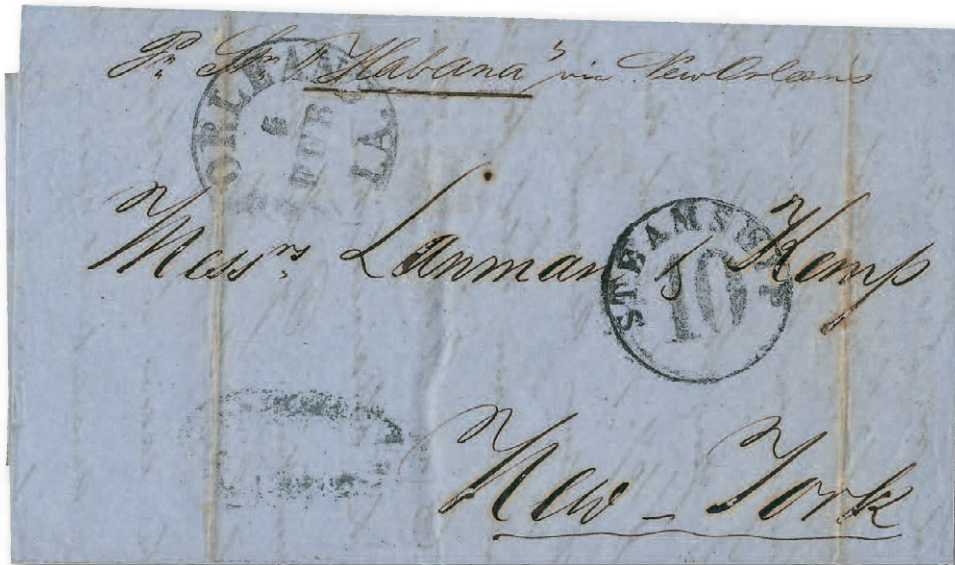 Pr Str "Habana" via New Orleans
ORLEANS
6
LA.
Messrs. Lanman & Kemp
STEAMSHIP
10
New-York